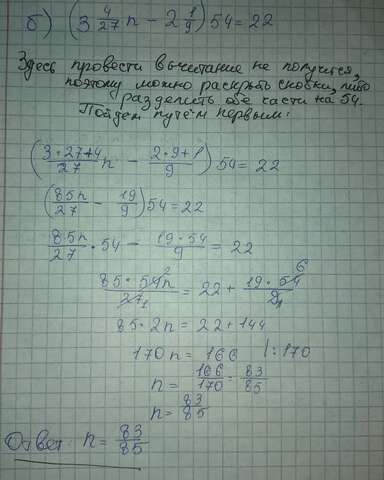 б) (3 4/27 n - 2 1/9) 54 = 22
Здесь провести вычитание не получится,
поэтому можно раскрыть скобки, либо
разделить обе части на 54.
Пойдем путём первым:
(3·27+4/27 n - 2·9+1/9) 54 = 22
(85n/27 - 19/9) 54 = 22
85n/27 · 54 - 19·54/9 = 22
85·54n²/27₁ = 22 + 19·54⁶/9₁
85·2n = 22 + 144
170n = 166 |:170
n = 166/170 = 83/85
n = 83/85
Ответ: n = 83/85